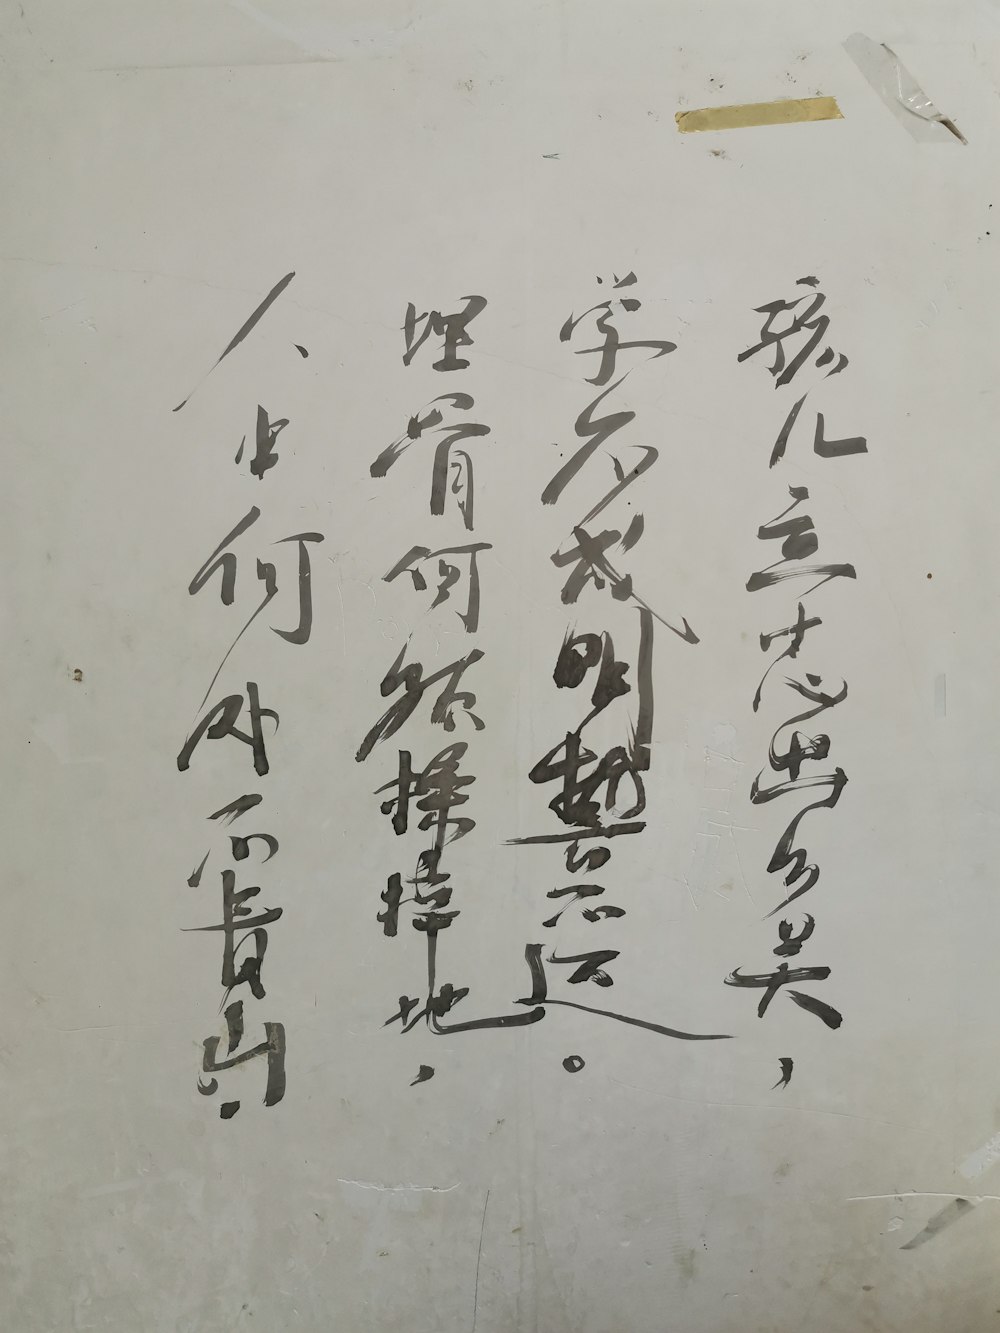 孩儿立志出乡关，
学不成明誓不还。
埋骨何须梓地，
人生何处不青山.